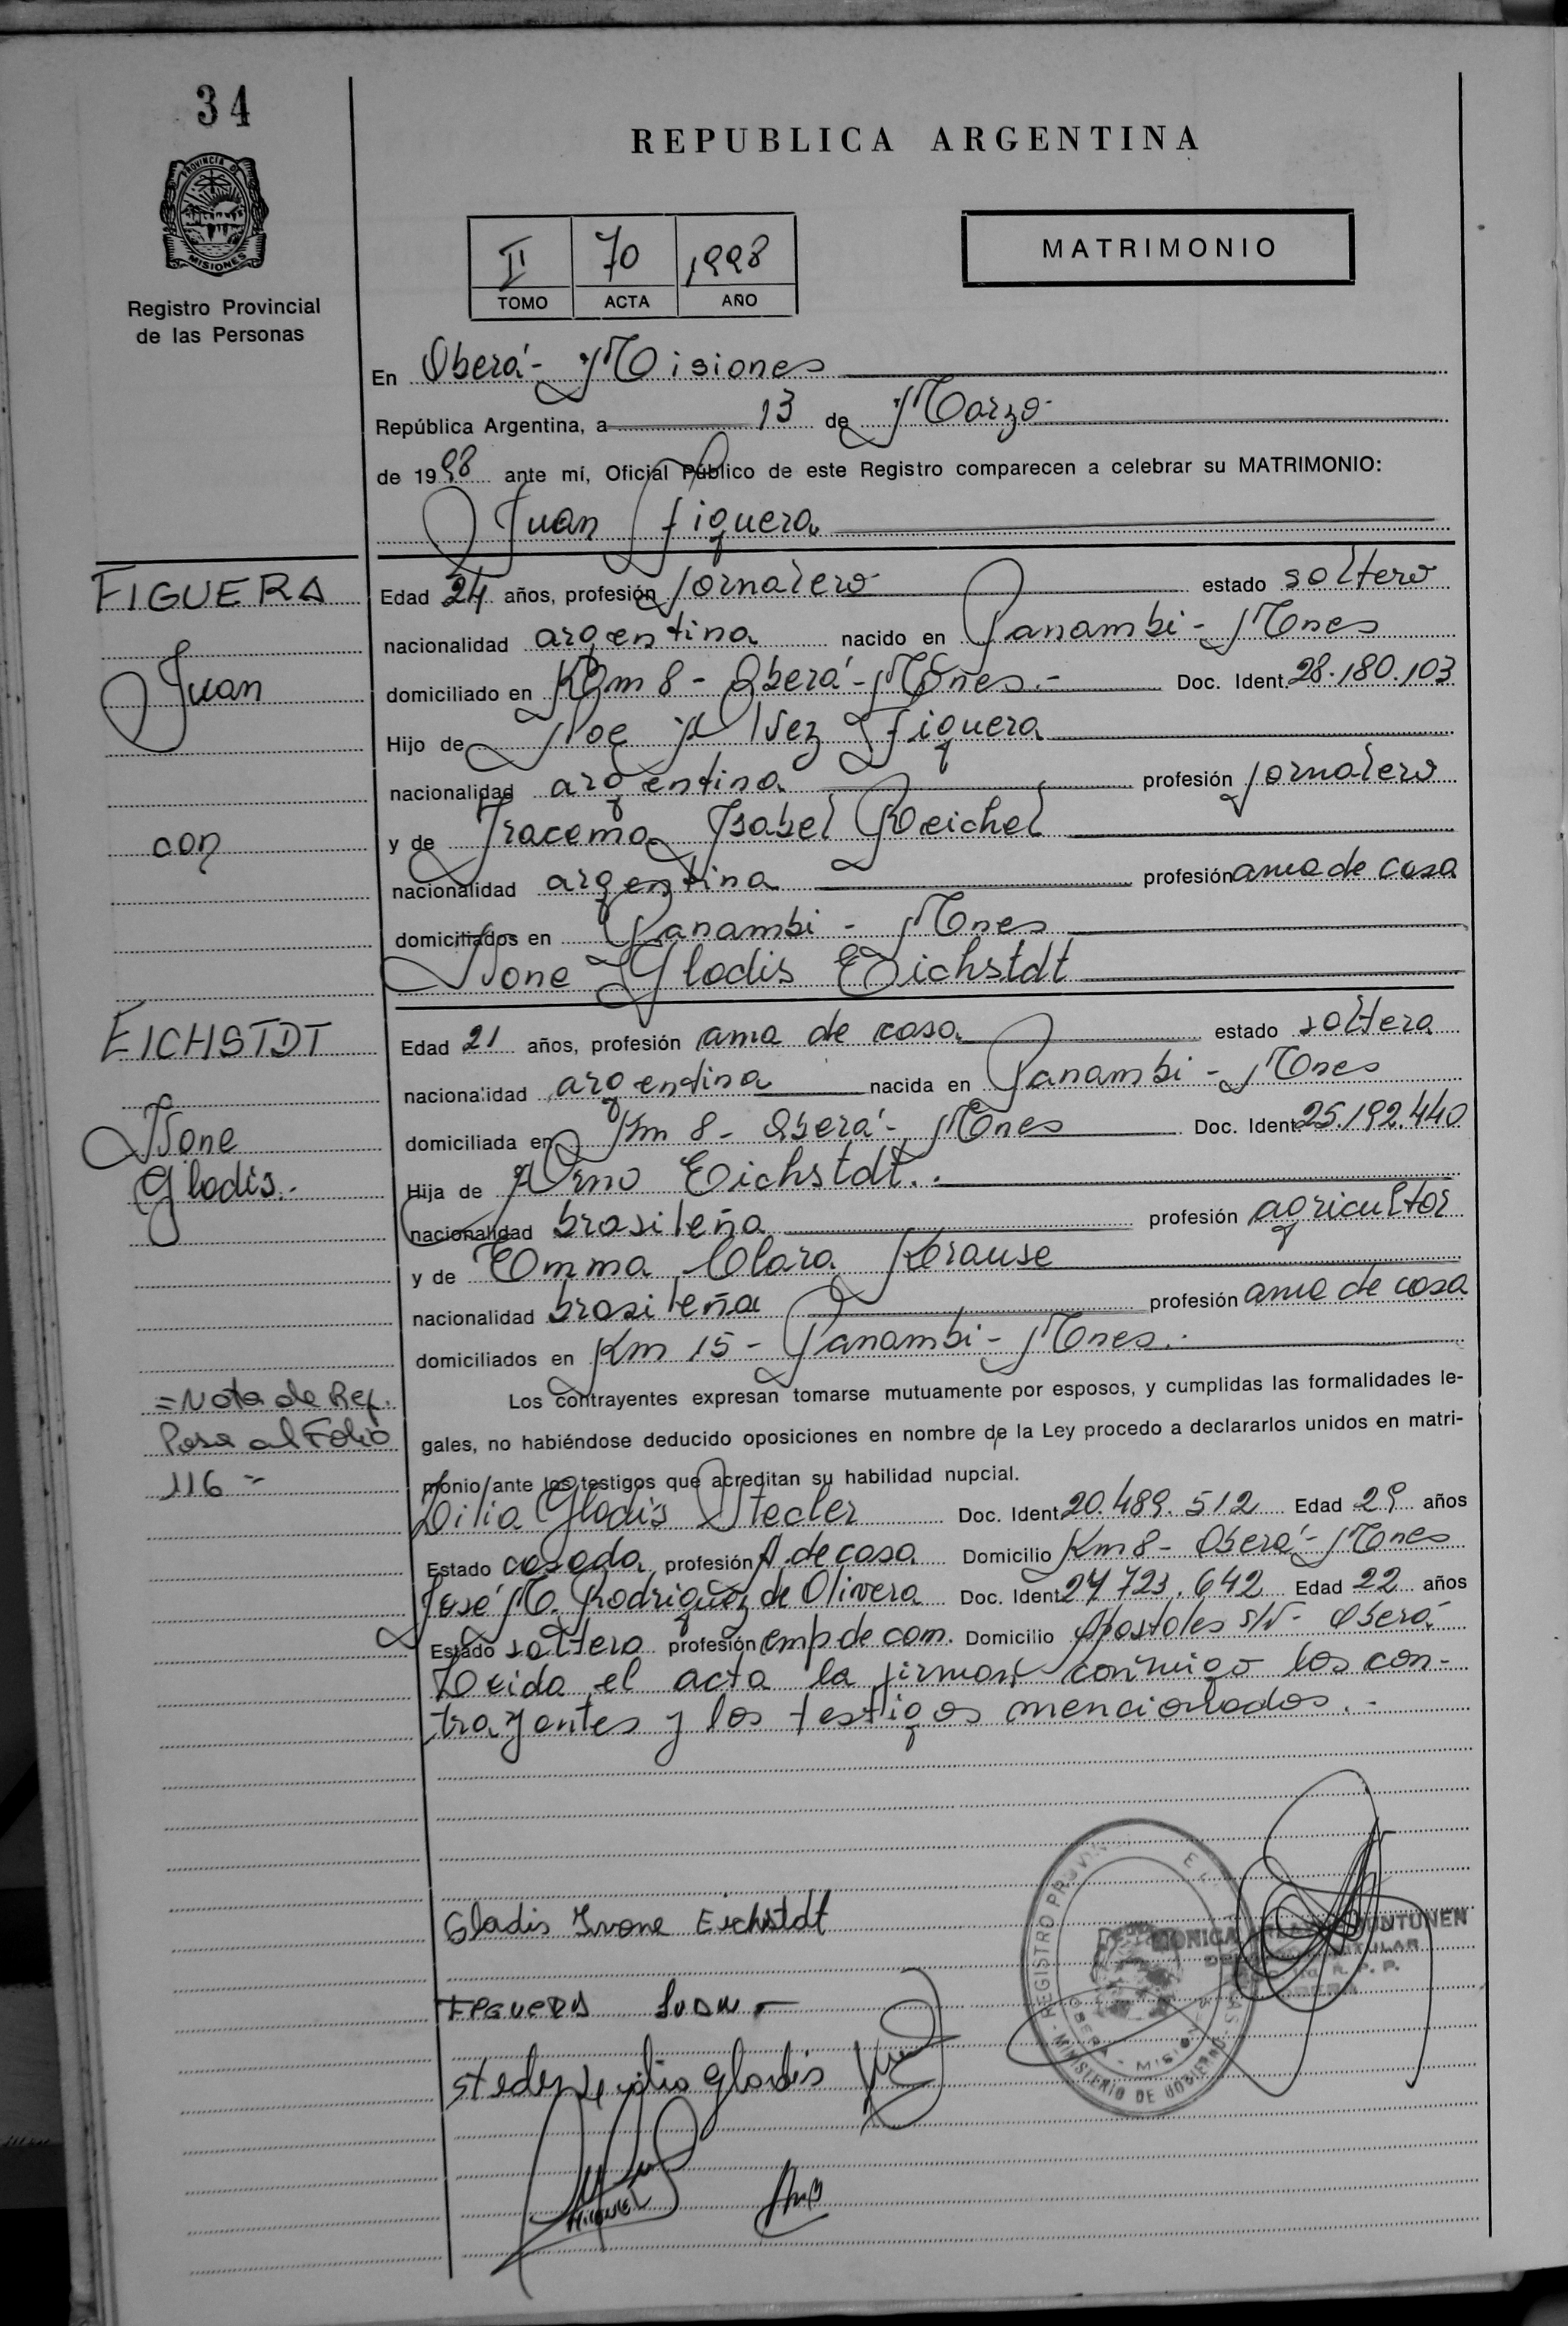 34
REPUBLICA ARGENTINA
PROVINCIA DE
MISIONES
Registro Provincial
de las Personas
II 70 1998
TOMO ACTA AÑO
MATRIMONIO
En Oberá- Misiones
República Argentina, a 13 de Marzo-
de 1998 ante mí, Oficial Público de este Registro comparecen a celebrar su MATRIMONIO:
Juan Figuera
FIGUERA
Juan
con
Edad 24 años, profesión Jornalero estado soltero
nacionalidad argentina nacido en Panambi - Mnes
domiciliado en Km 8 - Oberá - Mnes.- Doc. Ident. 28.180.103
Hijo de Noe Alvez Figuera
nacionalidad argentina profesión Jornalero
y de Iracema Isabel Reichel
nacionalidad argentina profesión ama de casa
domiciliados en Panambi - Mnes
Ivone Gladis Eichstdt
EICHSTDT
Ivone
Gladis.-
Edad 21 años, profesión ama de casa estado soltera
nacionalidad argentina nacida en Panambi - Mnes
domiciliada en Km 8 - Oberá - Mnes Doc. Ident. 25.192.440
Hija de Arno Eichstdt.
nacionalidad brasileña profesión agricultor
y de Emma Clara Krause
nacionalidad brasileña profesión ama de casa
domiciliados en Km 15 - Panambi - Mnes.
=Nota de Ref.
Pasa al Folio
116 =
Los contrayentes expresan tomarse mutuamente por esposos, y cumplidas las formalidades le-
gales, no habiéndose deducido oposiciones en nombre de la Ley procedo a declararlos unidos en matri-
monio ante los testigos que acreditan su habilidad nupcial.
Lilia Gladis Steder Doc. Ident. 20.489.512 Edad 29 años
Estado casada profesión A. de casa Domicilio Km 8 - Oberá - Mnes
José M. Rodriguez de Olivera Doc. Ident. 24.723.642 Edad 22 años
Estado soltero profesión emp de com. Domicilio Apostoles s/N - Oberá
Leida el acta la firman conmigo los con-
trayentes y los testigos mencionados.-
Gladis Ivone Eichstdt
FIGUERA JUAN -
Steder Lilia Gladis
MIGUEL
REGISTRO PROVIN
MINISTERIO DE GOBIERNO
MONICA
TITULAR
R. P. P.
OBERA